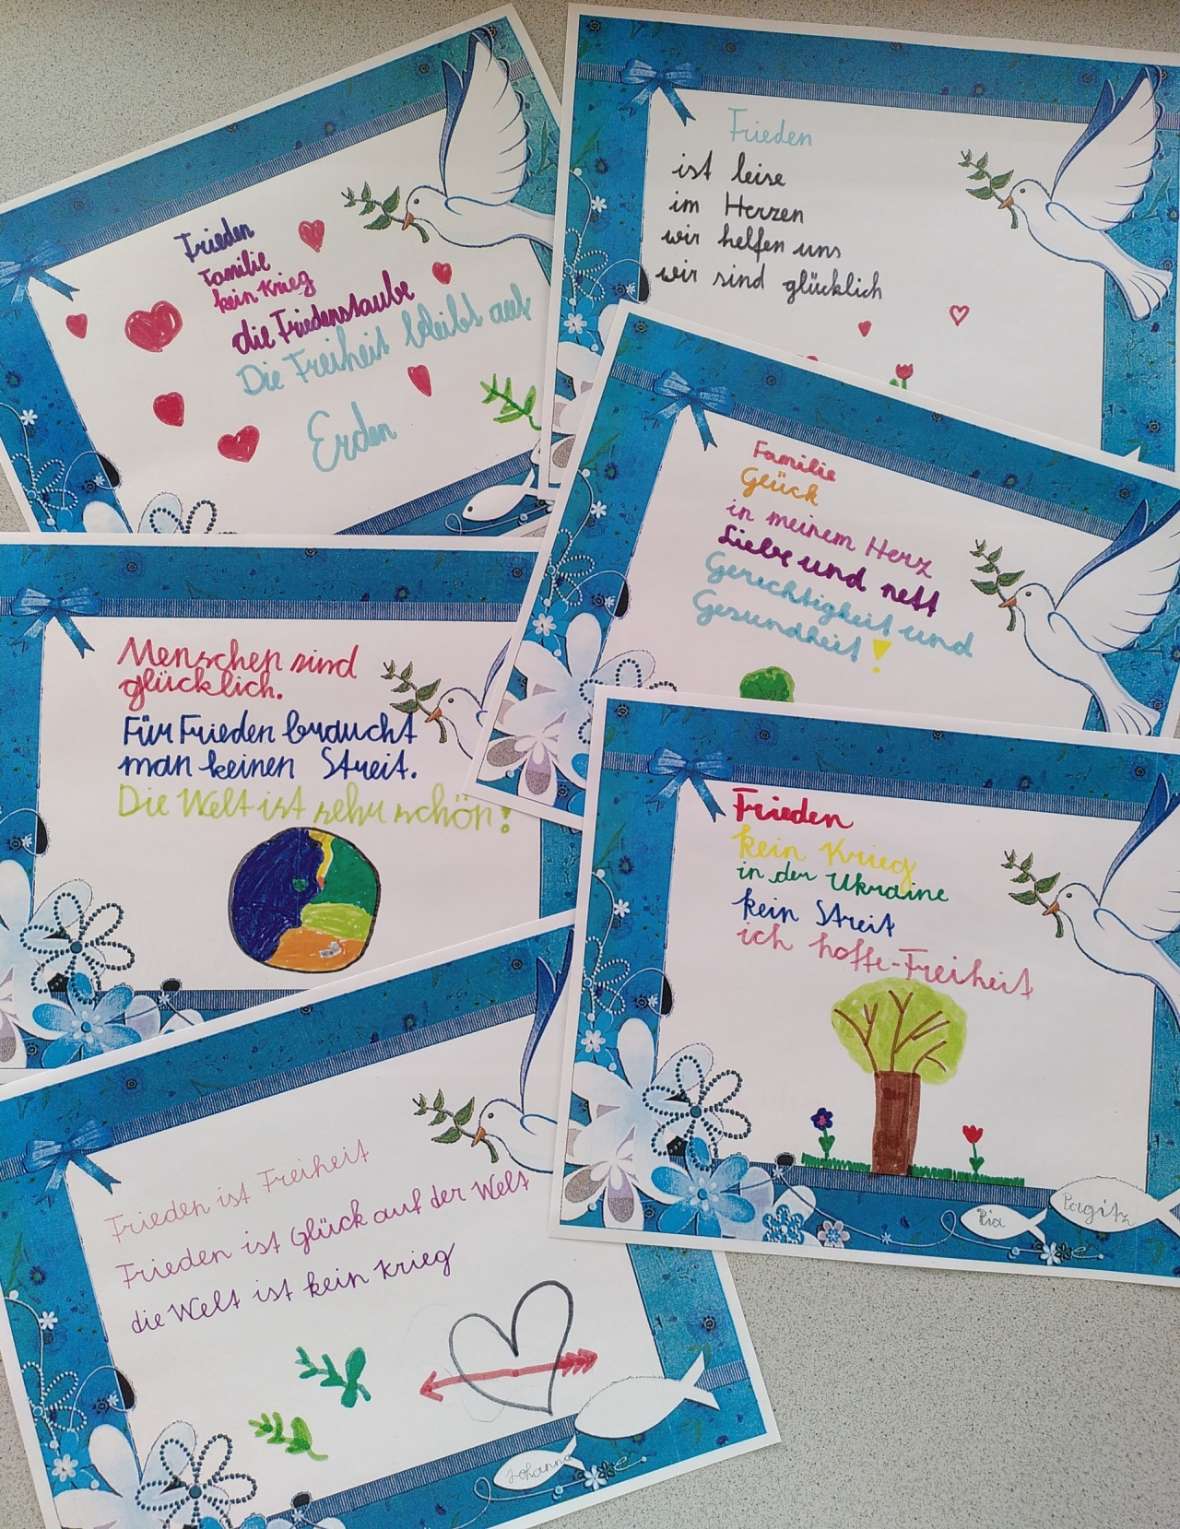 Frieden
Familie
kein Krieg
die Friedenstaube
Die Freiheit bleibt auf
Erden
Frieden
ist leise
im Herzen
wir helfen uns
wir sind glücklich
Familie
Glück
in meinem Herz
Liebe und nett
Gerechtigkeit und
Gesundheit!
Menschen sind
glücklich.
Für Frieden braucht
man keinen Streit.
Die Welt ist sehr schön!
Frieden
kein Krieg
in der Ukraine
kein Streit
ich hoffe-Freiheit
Pia Pagitz
Frieden ist Freiheit
Frieden ist Glück auf der Welt
die Welt ist kein Krieg
Johanna